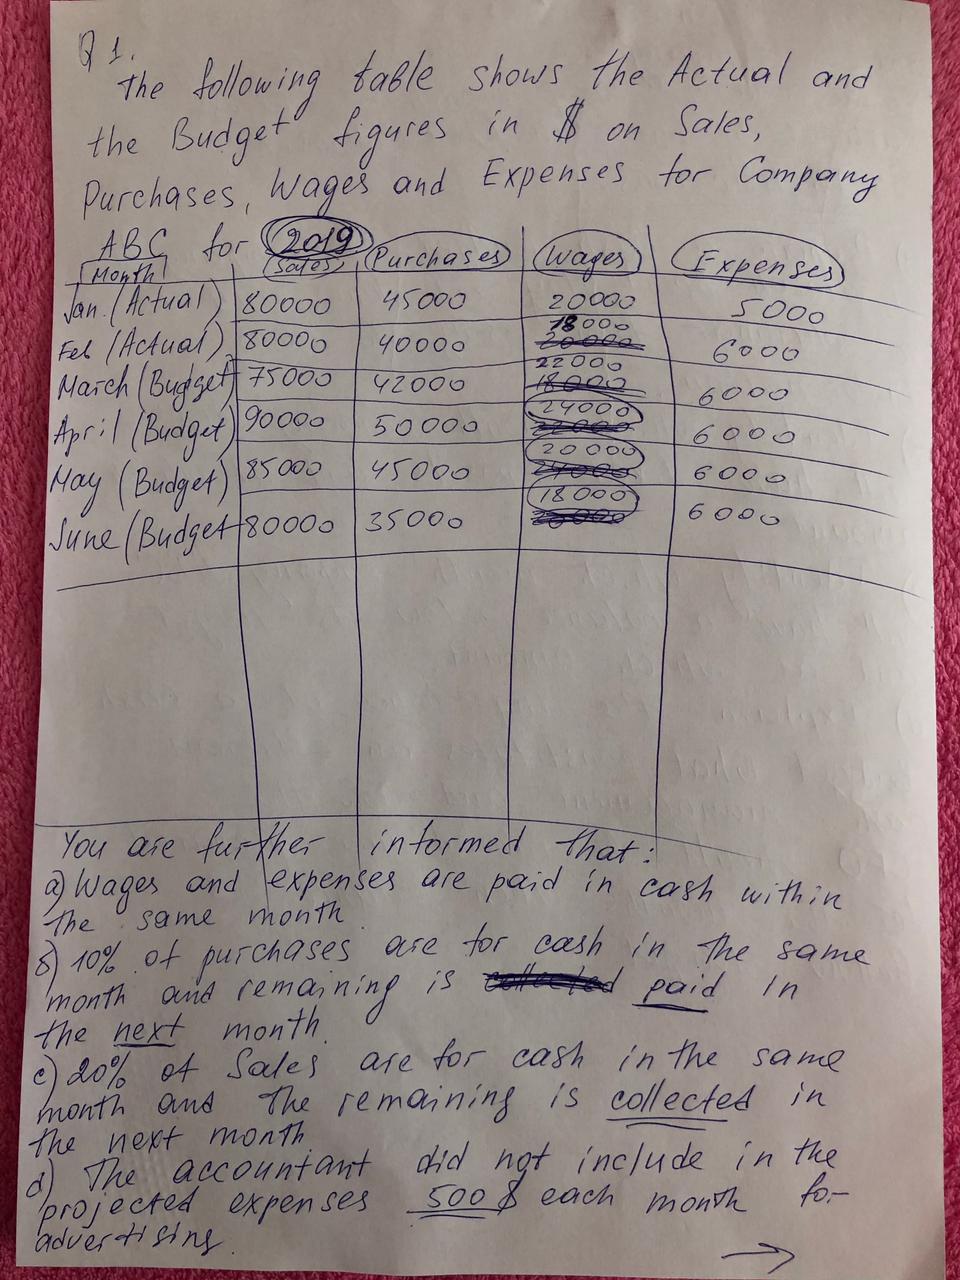 Q 1.
The following table shows the Actual and
the Budget figures in $ on Sales,
Purchases, Wages and Expenses for Company
ABC for 2019
Month Sales Purchases Wages Expenses
Jan. (Actual) 80000 45000 20000 5000
Feb (Actual) 80000 40000 18000 20000 6000
March (Budget) 75000 42000 22000 18000 6000
April (Budget) 90000 50000 24000 22000 6000
May (Budget) 85000 45000 20000 24000 6000
June (Budget 80000 35000 18000 6000
You are further informed that:
a) Wages and expenses are paid in cash within
the same month
b) 10% of purchases are for cash in the same
month and remaining is collected paid in
the next month.
c) 20% of Sales are for cash in the same
month and the remaining is collected in
the next month
d) The accountant did not include in the
projected expenses 500 $ each month for
advertising.